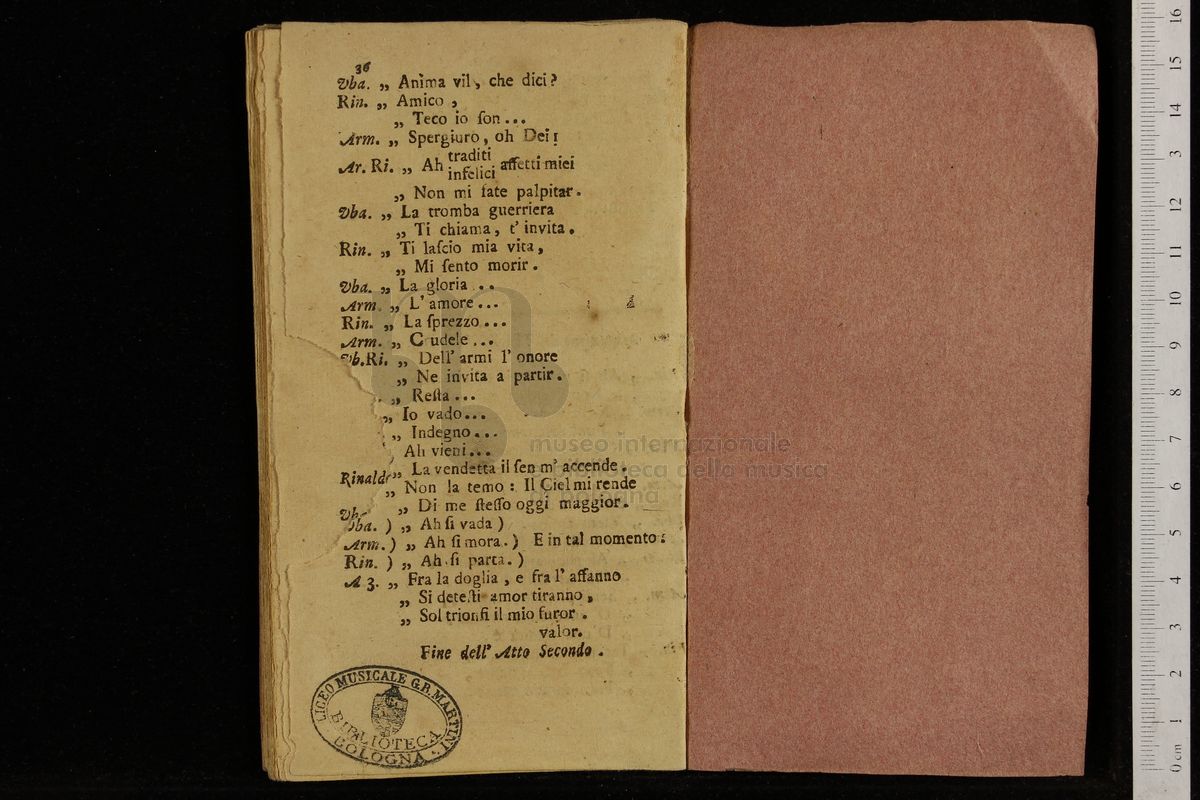 36
Vba. „ Anima vil, che dici?
Rin. „ Amico,
„ Teco io ſon...
Arm. „ Spergiuro, oh Dei!
Ar. Ri. „ Ah traditi affetti miei
infelici
„ Non mi fate palpitar.
Vba. „ La tromba guerriera
„ Ti chiama, t' invita.
Rin. „ Ti laſcio mia vita,
„ Mi ſento morir.
Vba. „ La gloria...
Arm. „ L' amore...
Rin. „ La ſprezzo...
Arm. „ C udele...
Vb.Ri. „ Dell' armi l' onore
„ Ne invita a partir.
„ Reſta...
„ Io vado...
„ Indegno...
Ah vieni...
„ La vendetta il ſen m' accende.
Rinald
„ Non la temo: Il Ciel mi rende
„ Di me ſteſſo oggi maggior.
Vb
ba. ) „ Ah ſi vada )
Arm. ) „ Ah ſi mora. ) E in tal momento:
Rin. ) „ Ah ſi parta. )
A 3. „ Fra la doglia, e fra l' affanno
„ Si deteſti amor tiranno,
„ Sol trionfi il mio furor.
valor.
Fine dell' Atto Secondo.
LICEO MUSICALE G.B. MARTINI
BIBLIOTECA
BOLOGNA
museo internazionale
e biblioteca della musica
di bologna
0 cm 1 2 3 4 5 6 7 8 9 10 11 12 13 14 15 16